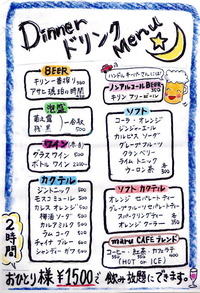 Dinner
ドリンク Menu
BEER
キリン一番搾り 500
アサヒ 琥珀の時間
泡盛
菊之露
残黒
一合瓶 500
ワイン
グラスワイン 500
ボトルワイン
カクテル
ジントニック 500
モスコミュール 500
カシスオレンジ 500
梅酒ソーダ 500
カルアミルク 500
ラムコーク 500
チャイナブルー 500
シャンディガフ 500
ハンドルキーパーさんには!
ノンアルコールBEER
キリンフリー
ソフト
コーラ・オレンジ
ジンジャーエール
カルピスソーダ
グレープフルーツ
クランベリー
ライムトニック
ウーロン茶
ソフトカクテル
オレンジ
スパークリングティー
オレンジクーラー
maru CAFEブレンド
コーヒー 紅茶 カフェラテ
(HOT or ICE)
2時間
おひとり様 ¥1500で 飲み放題にできます。